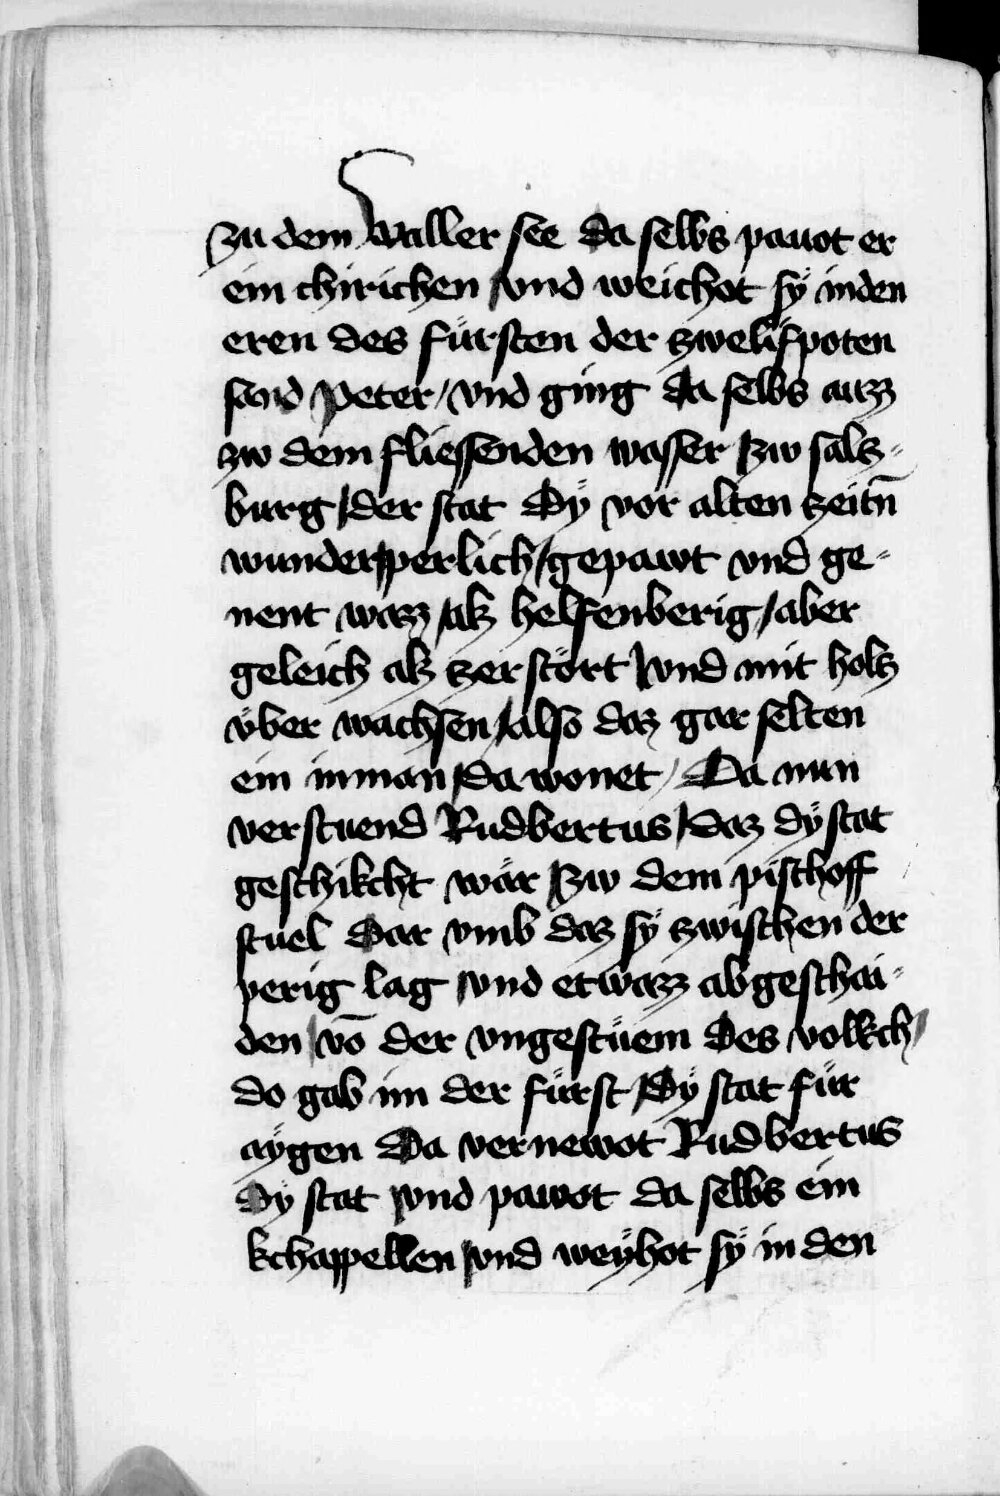 zu dem Waller see da selbs pauot er
ein chirichen vnd weichot sÿ in den
eren des fürsten der zwelifpoten
sand Peter / vnd ging da selbs auzz
zw dem fliessenden wasser zw salcz=
burg / der stat Dÿ vor alten zeitñ
wunderperlich / gepawt vnd ge=
nent wazz / alz helfenberig / aber
geleich alz zerstört vnd mit holcz
vber wachsen / also daz gar selten
ein inman da wonet / Da nun
verstuend Rudbertus / daz dÿ stat
geschikcht wär zw dem pischoff
stuel Dar vmb daz sÿ zwischen der
perig lag vnd etwazz abgeschai=
den vō der vngestüem des volkch /
do gab im der fürst Dÿ stat für
aÿgen Da vernewot Rudbertus
Dÿ stat vnd pawot da selbs ein
kchappellen vnd weÿhot sÿ in den